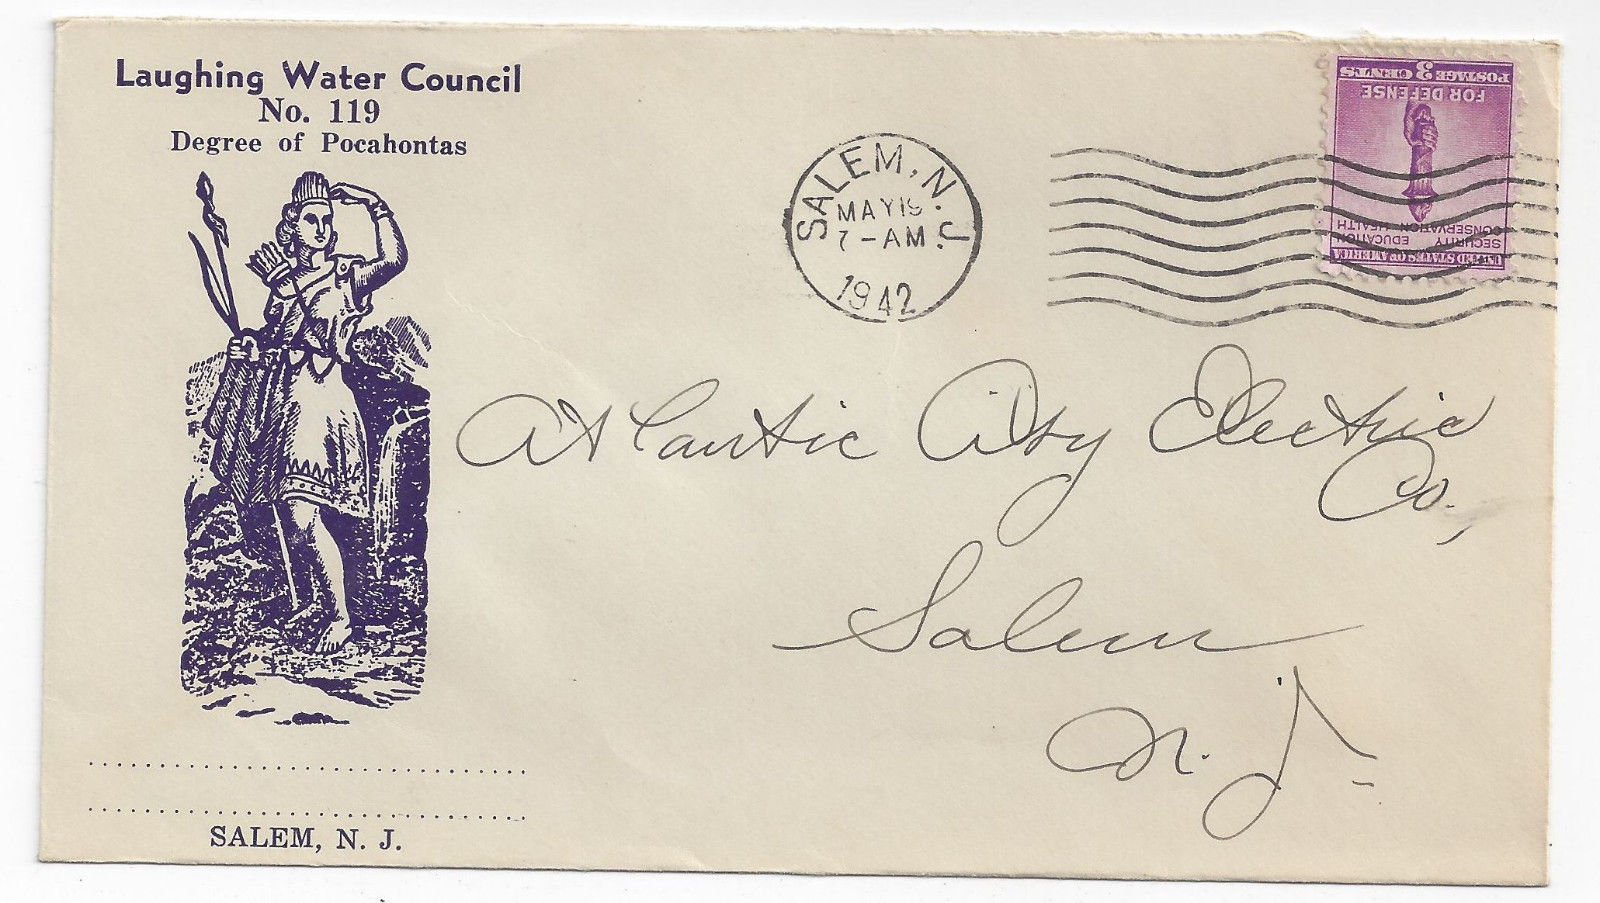 Laughing Water Council
No. 119
Degree of Pocahontas
SALEM, N. J.
MAY 19
7-AM
1942
POSTAGE 3 CENTS
FOR DEFENSE
SECURITY EDUCATION
CONSERVATION HEALTH
UNITED STATES OF AMERICA
Atlantic City Electric
Co.,
Salem
N. J.
SALEM, N. J.